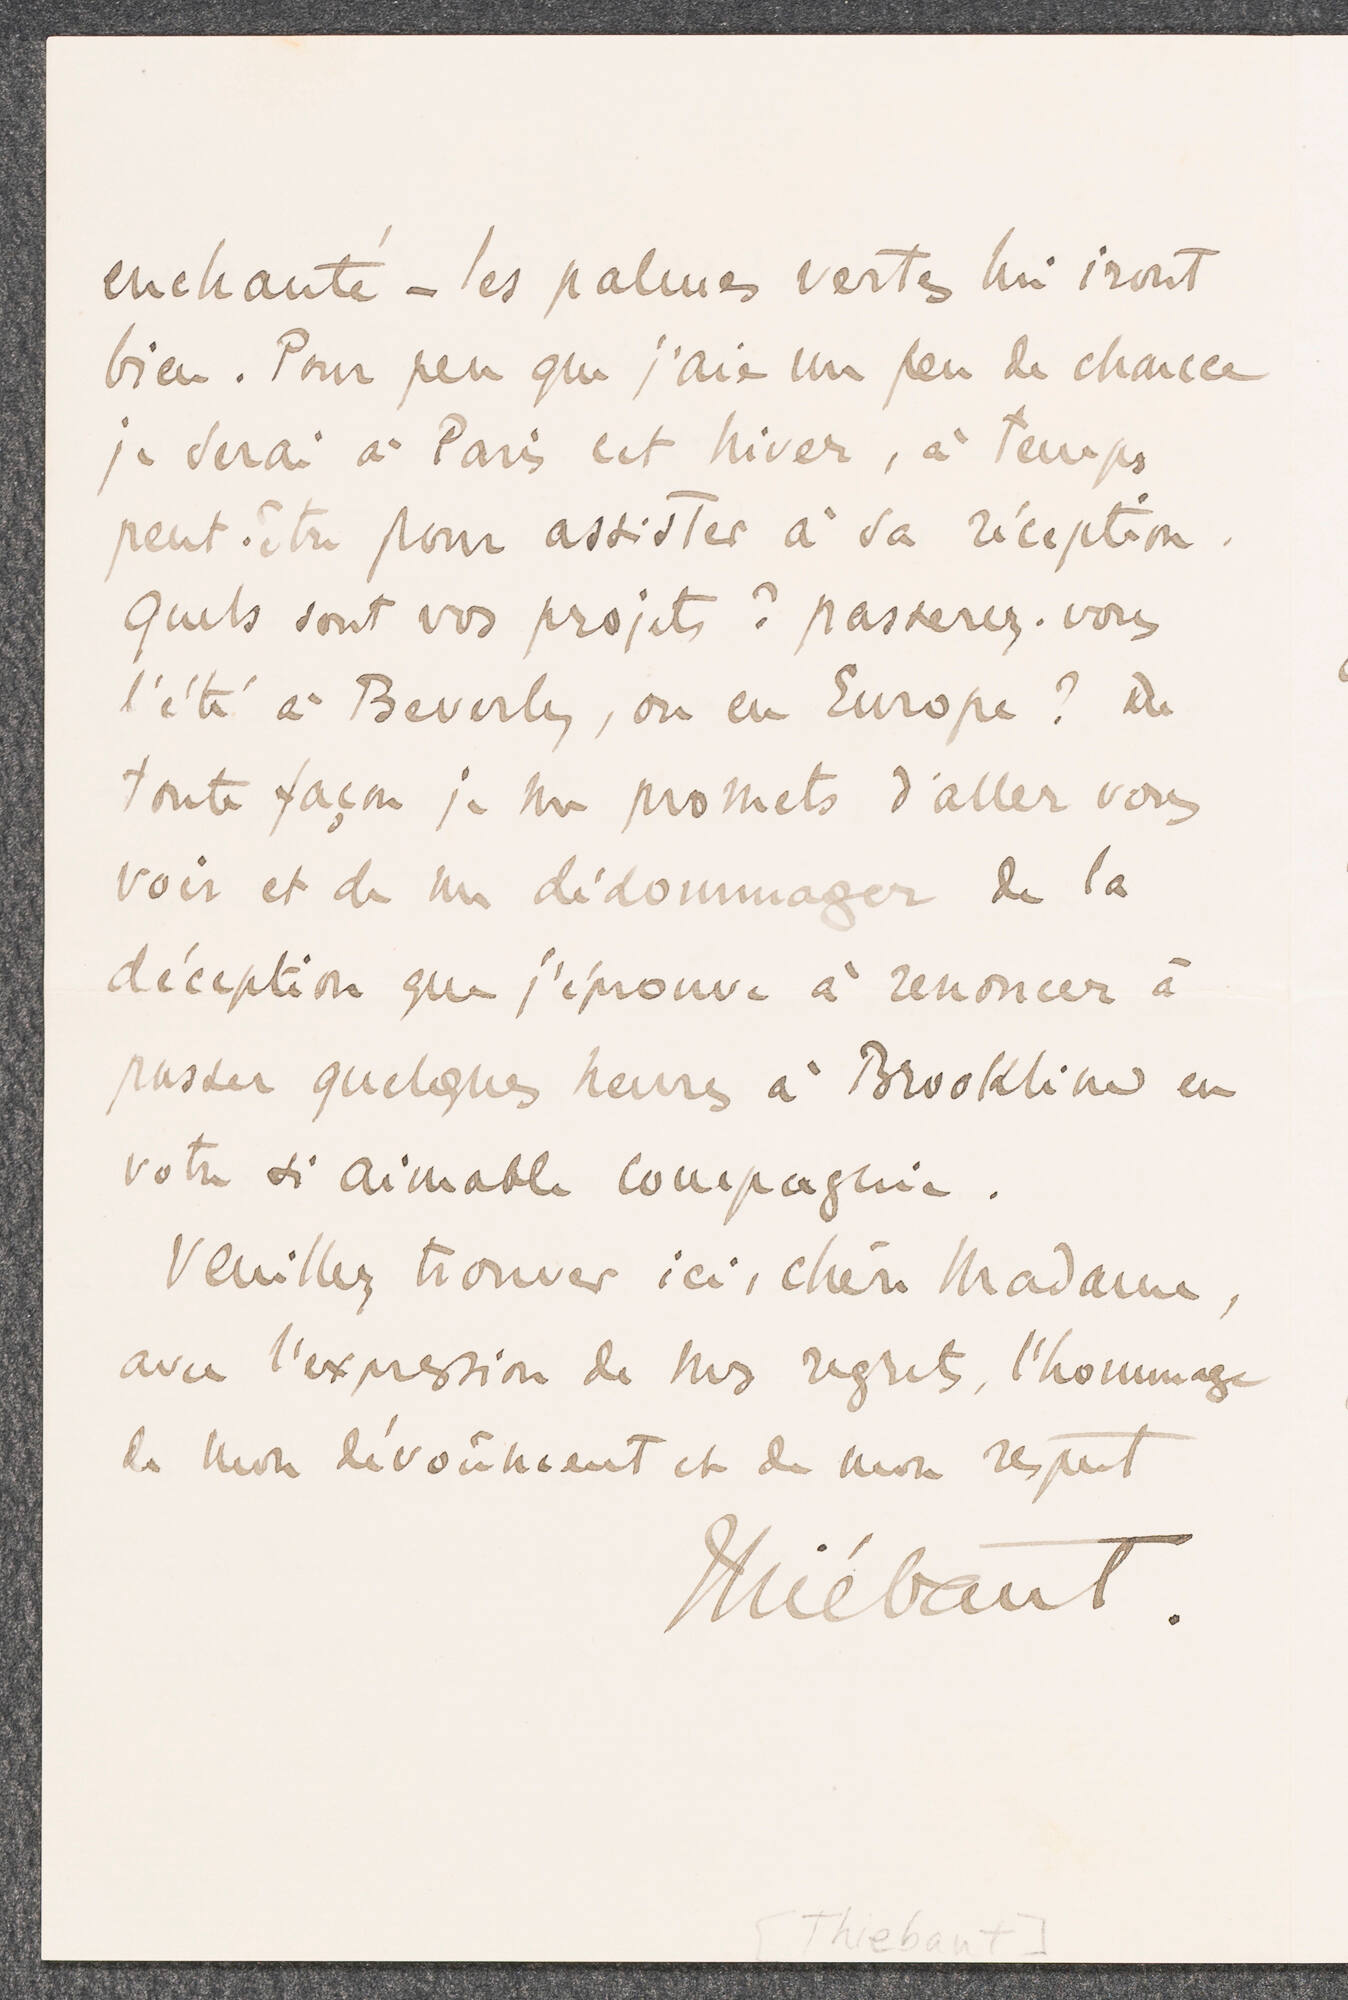 enchanté – les palmes vertes lui iront
bien. Pour peu que j'aie un peu de chance
je serai à Paris cet hiver, à temps
peut-être pour assister à sa réception.
Quels sont vos projets ? passerez-vous
l'été à Beverly, ou en Europe ? De
toute façon je me promets d'aller vous
voir et de me dédommager de la
déception que j'éprouve à renoncer à
passer quelques heures à Brookline en
votre si aimable compagnie.
Veuillez trouver ici, chère Madame,
avec l'expression de mes regrets, l'hommage
de mon dévoûment et de mon respect
Thiébaut.
[Thiebaut]